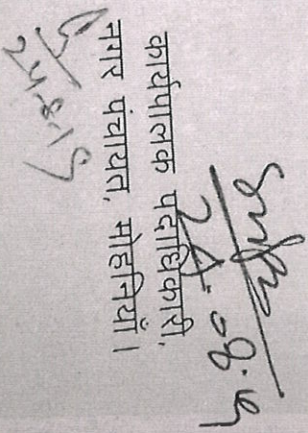 24.08.19
कार्यपालक पदाधिकारी,
नगर पंचायत, मोहनियाँ।
24.8.19